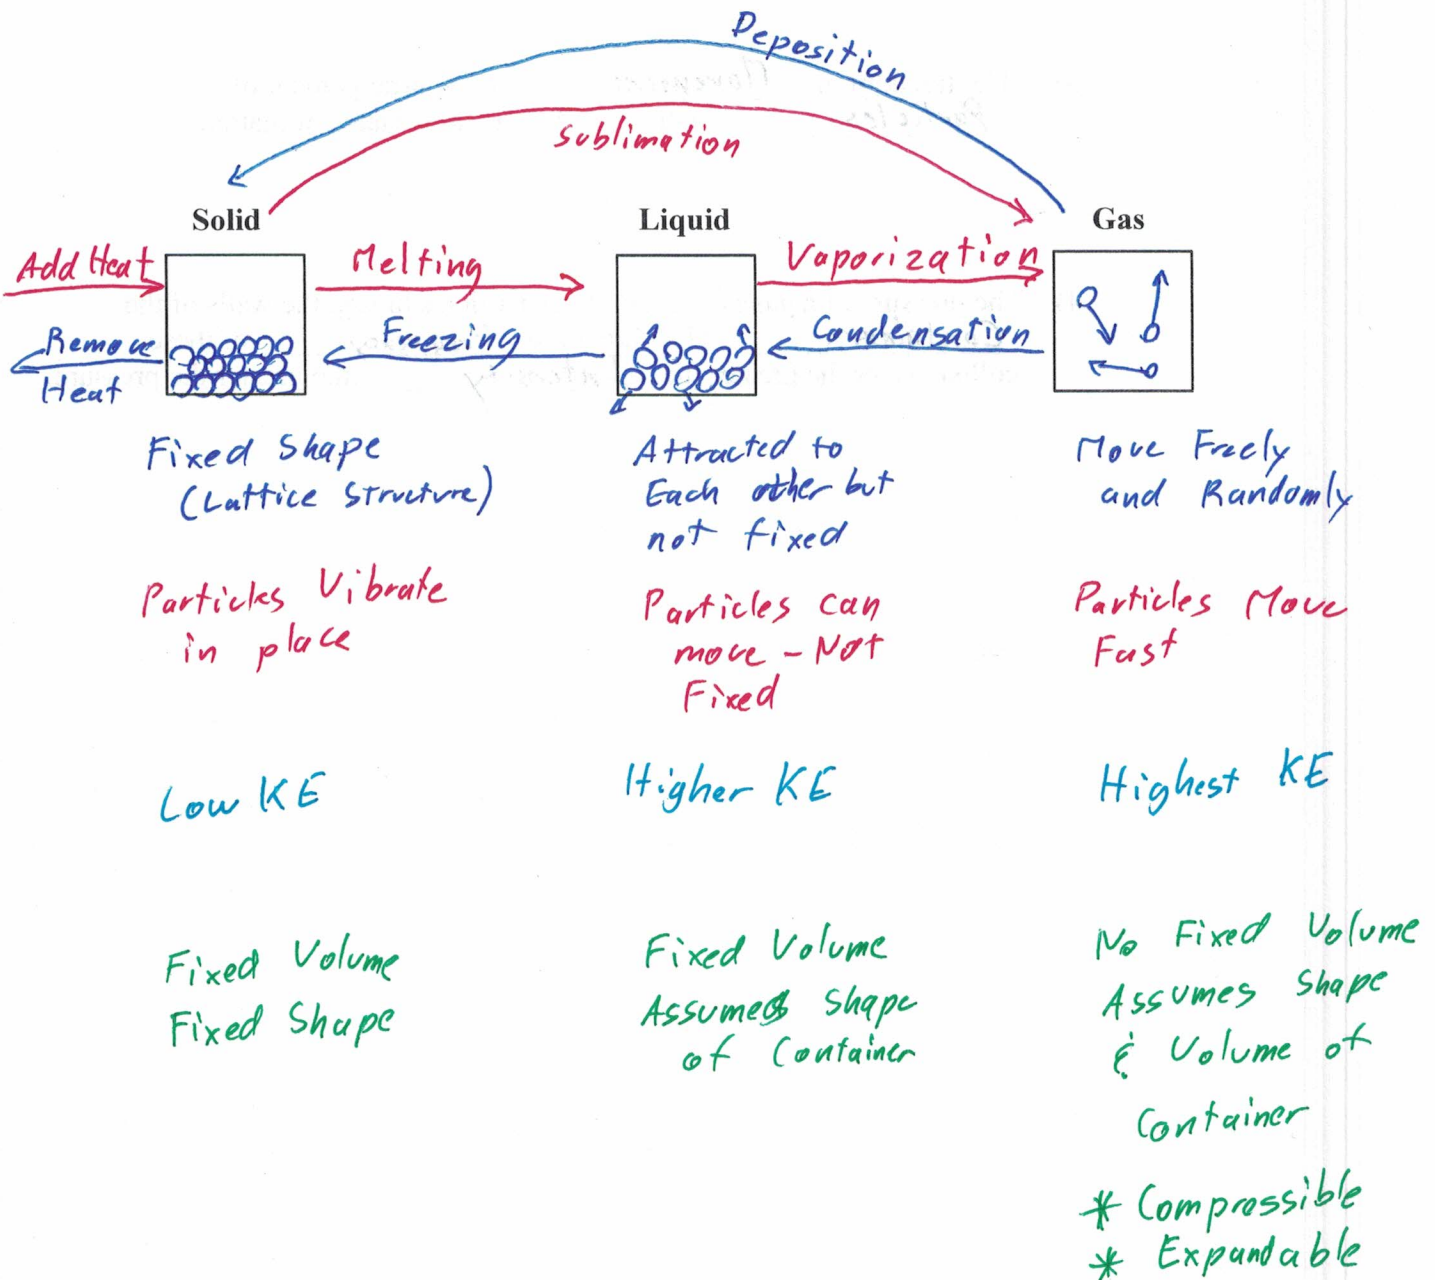 Deposition
Sublimation
Solid
Liquid
Gas
Add Heat
Melting
Vaporization
Remove
Heat
Freezing
Condensation
Fixed Shape
(Lattice Structure)
Attracted to
Each other but
not fixed
Move Freely
and Randomly
Particles Vibrate
in place
Particles can
move - Not
Fixed
Particles Move
Fast
Low KE
Higher KE
Highest KE
Fixed Volume
Fixed Shape
Fixed Volume
Assumes Shape
of Container
No Fixed Volume
Assumes Shape
& Volume of
Container
* Compressible
* Expandable